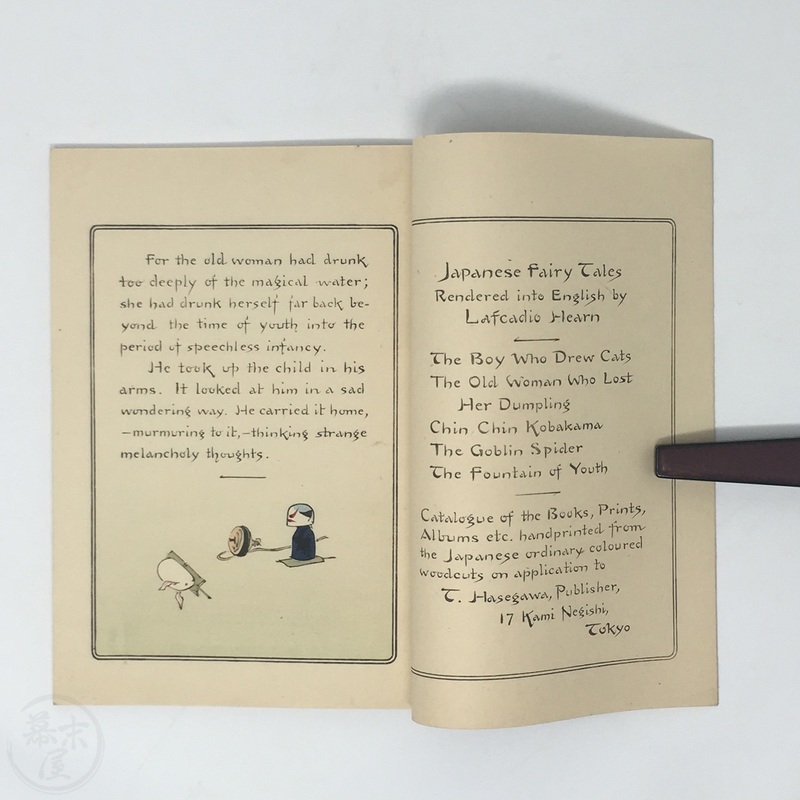 For the old woman had drunk
too deeply of the magical water;
she had drunk herself far back be-
yond the time of youth into the
period of speechless infancy.
He took up the child in his
arms. It looked at him in a sad
wondering way. He carried it home,
—murmuring to it,—thinking strange
melancholy thoughts.
Japanese Fairy Tales
Rendered into English by
Lafcadio Hearn
The Boy Who Drew Cats
The Old Woman Who Lost
Her Dumpling
Chin Chin Kobakama
The Goblin Spider
The Fountain of Youth
Catalogue of the Books, Prints,
Albums etc. handprinted from
the Japanese ordinary coloured
woodcuts on application to
T. Hasegawa, Publisher,
17 Kami Negishi,
Tokyo
幕末
屋